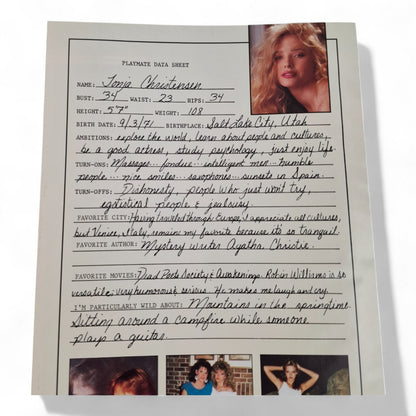 PLAYMATE DATA SHEET
NAME: Tonja Christensen
BUST: 34 WAIST: 23 HIPS: 34
HEIGHT: 5'7" WEIGHT: 108
BIRTH DATE: 9/3/71 BIRTHPLACE: Salt Lake City, Utah
AMBITIONS: explore the world, learn about people and cultures,
be a good actress, study psychology, just enjoy life.
TURN-ONS: Massages... fondue... intelligent men... humble
people... nice smiles... saxophones... sunsets in Spain.
TURN-OFFS: Dishonesty, people who just won't try,
egotistical people & jealousy.
FAVORITE CITY: Having traveled through Europe, I appreciate all cultures,
but Venice, Italy, remains my favorite because it's so tranquil.
FAVORITE AUTHOR: Mystery writer Agatha Christie.
FAVORITE MOVIES: Dead Poets Society & Awakenings. Robin Williams is so
versatile: very humorous & serious. He makes me laugh and cry.
I'M PARTICULARLY WILD ABOUT: Mountains in the springtime.
Sitting around a campfire while someone
plays a guitar.